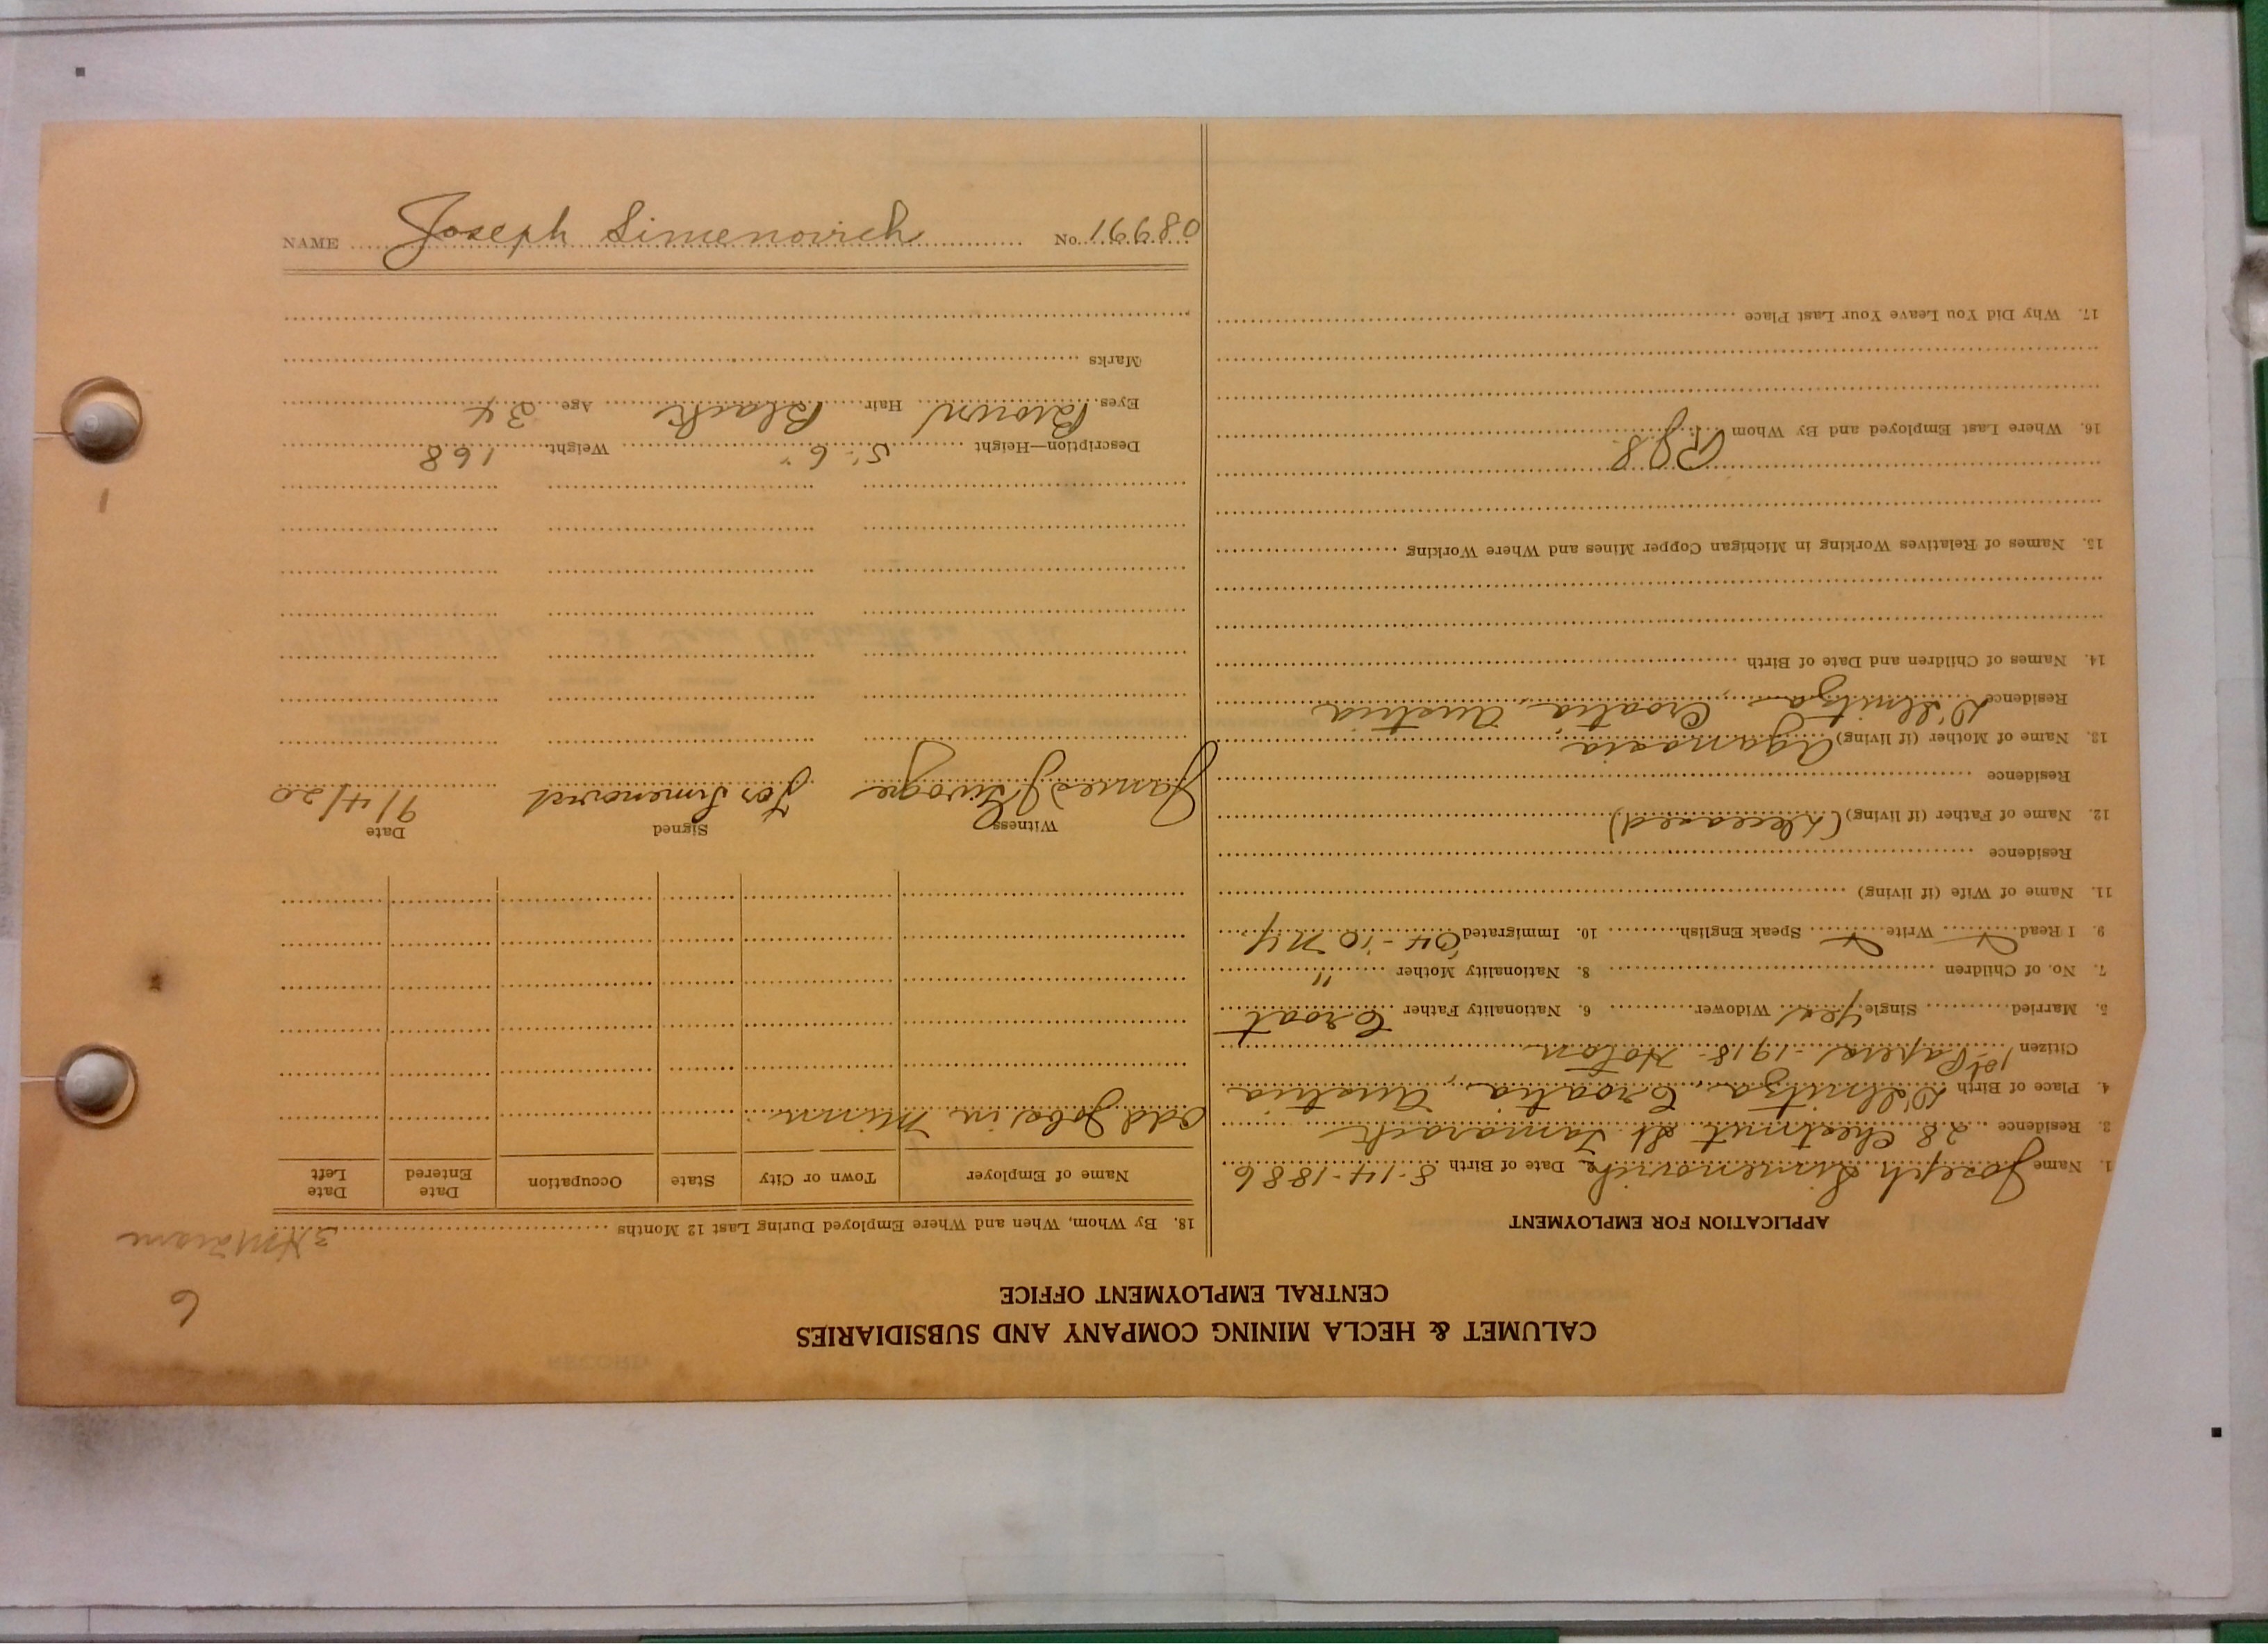 CALUMET & HECLA MINING COMPANY AND SUBSIDIARIES
CENTRAL EMPLOYMENT OFFICE
6
APPLICATION FOR EMPLOYMENT
1. Name Joseph Simenovich Date of Birth 8-14-1886
3. Residence 28 Chestnut St Tamarack
4. Place of Birth Croatia, Austria
Citizen 1st Papers 1918
5. Married Single yes Widower 6. Nationality Father Croat
7. No. of Children 8. Nationality Mother "
9. I Read Write Speak English 10. Immigrated 04-10 NY
11. Name of Wife (if living)
Residence
12. Name of Father (if living) (deceased)
Residence
13. Name of Mother (if living)
Residence Croatia, Austria
14. Names of Children and Date of Birth
15. Names of Relatives Working in Michigan Copper Mines and Where Working
16. Where Last Employed and By Whom
17. Why Did You Leave Your Last Place
18. By Whom, When and Where Employed During Last 12 Months
Name of Employer Town or City State Occupation Date Entered Date Left
Odd Jobs in Minn
Witness Signed Date
James Jos Simenovich 9/4/20
Description—Height 5' 6" Weight 168
Eyes Brown Hair Black Age 34
Marks
NAME Joseph Simenovich No. 16680